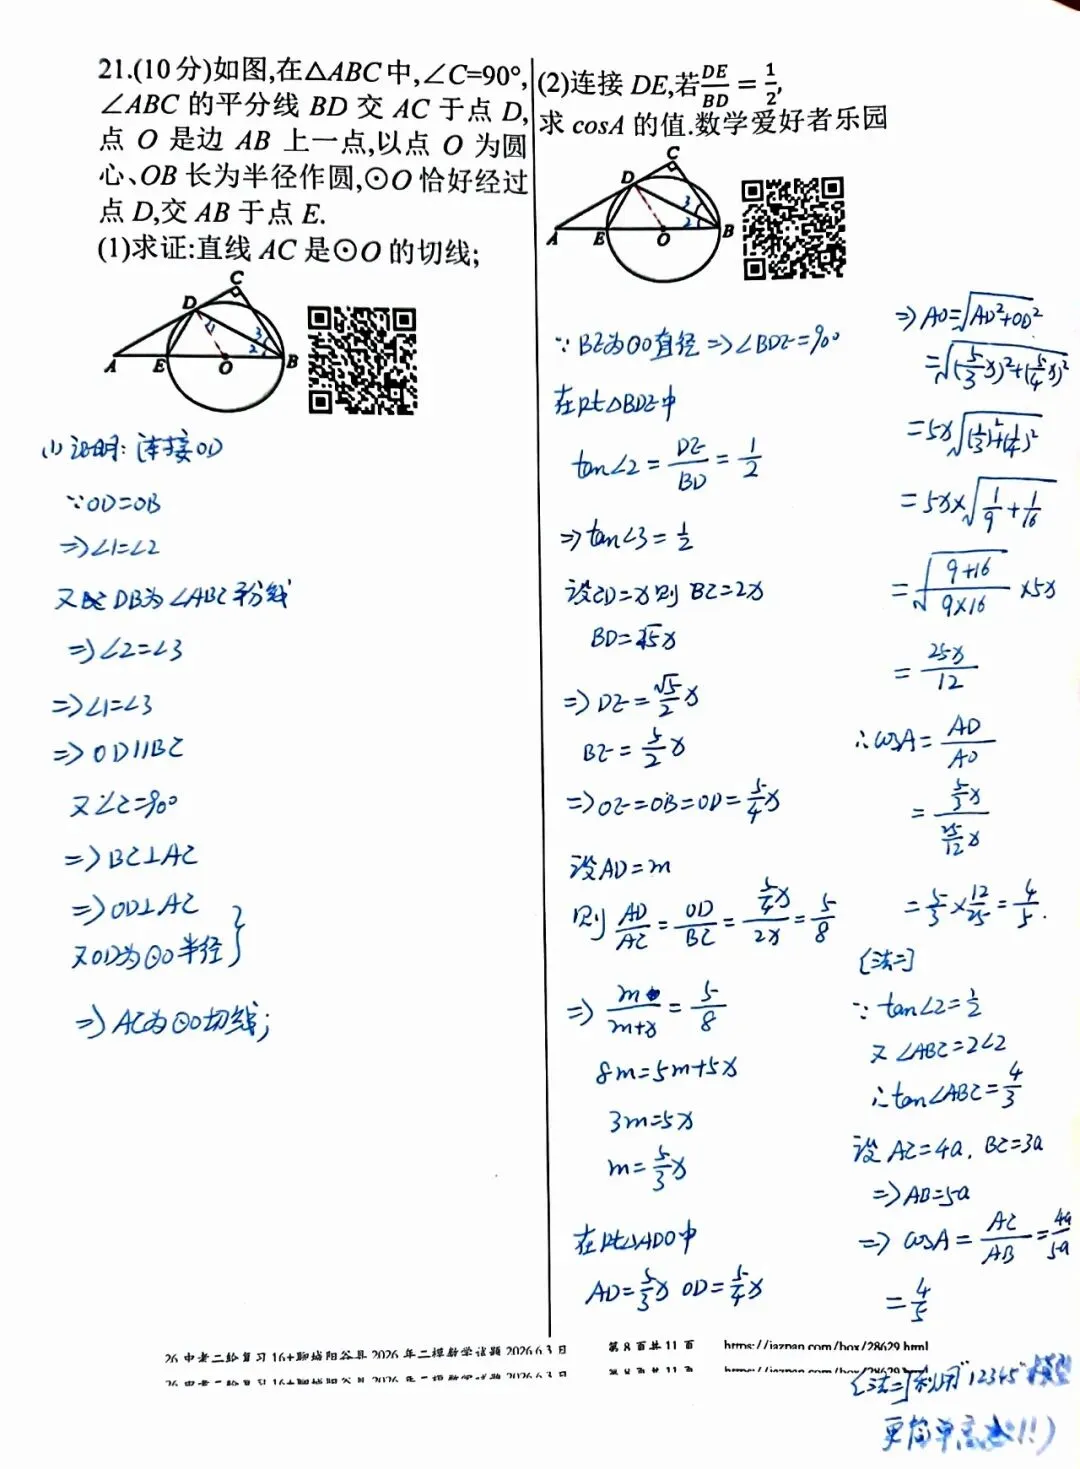 21.(10分)如图,在△ABC中,∠C=90°,
∠ABC 的平分线 BD 交 AC 于点 D,
点 O 是边 AB 上一点,以点 O 为圆
心、OB 长为半径作圆,⊙O 恰好经过
点 D,交 AB 于点 E.
(1)求证:直线 AC 是⊙O 的切线;
C
D
1
3
2
A
E
O
B
(1) 证明: 连接OD
∵OD=OB
⇒∠1=∠2
又 DB为∠ABC平分线
⇒∠2=∠3
⇒∠1=∠3
⇒OD∥BC
又∠C=90°
⇒BC⊥AC
⇒OD⊥AC
又OD为⊙O半径
⇒AC为⊙O切线;
(2)连接 DE,若DE/BD = 1/2,
求 cosA 的值.数学爱好者乐园
C
D
3
2
A
E
O
B
∵BE为⊙O直径⇒∠BDE=90°
在Rt△BDE中
tan∠2=DE/BD=1/2
⇒tan∠3=1/2
设CD=x则 BC=2x
BD=√5x
⇒DE=√5/2x
BE=5/2x
⇒OE=OB=OD=5/4x
设AD=m
则AD/AC=OD/BC=5/4x/2x=5/8
⇒m/m+x=5/8
8m=5m+5x
3m=5x
m=5/3x
在Rt△ADO中
AD=5/3x OD=5/4x
⇒AO=√AD²+OD²
=√(5/3x)²+(5/4x)²
=5x√(1/3)²+(1/4)²
=5x×√1/9+1/16
=√9+16/9×16 ×5x
=25x/12
∴cosA=AD/AO
=5/3x/25/12x
=5/3×12/25=4/5.
[法二]
∵tan∠2=1/2
又∠ABC=2∠2
∴tan∠ABC=4/3
设AC=4a, BC=3a
⇒AB=5a
⇒cosA=AC/AB=4a/5a
=4/5
26 中考二轮复习 16+聊城阳谷县 2026 年二模数学试题 2026.6.3 日 第 8 页共 11 页 https://jazpan.com/box/28629.html
[法二]利用"12345"模型
更简单高